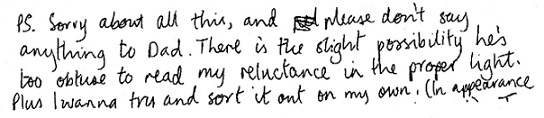 PS. Sorry about all this, and please don't say
anything to Dad. There is the slight possibility he's
too obtuse to read my reluctance in the proper light.
Plus I wanna try and sort it out on my own. (In appearance